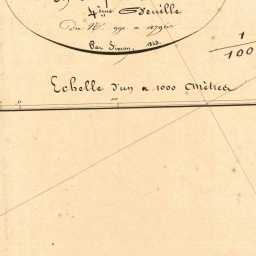 4ème Feuille
du N°. 991 a 1279
Par Simon,
1
100
Echelle d'un a 1000 Mètres